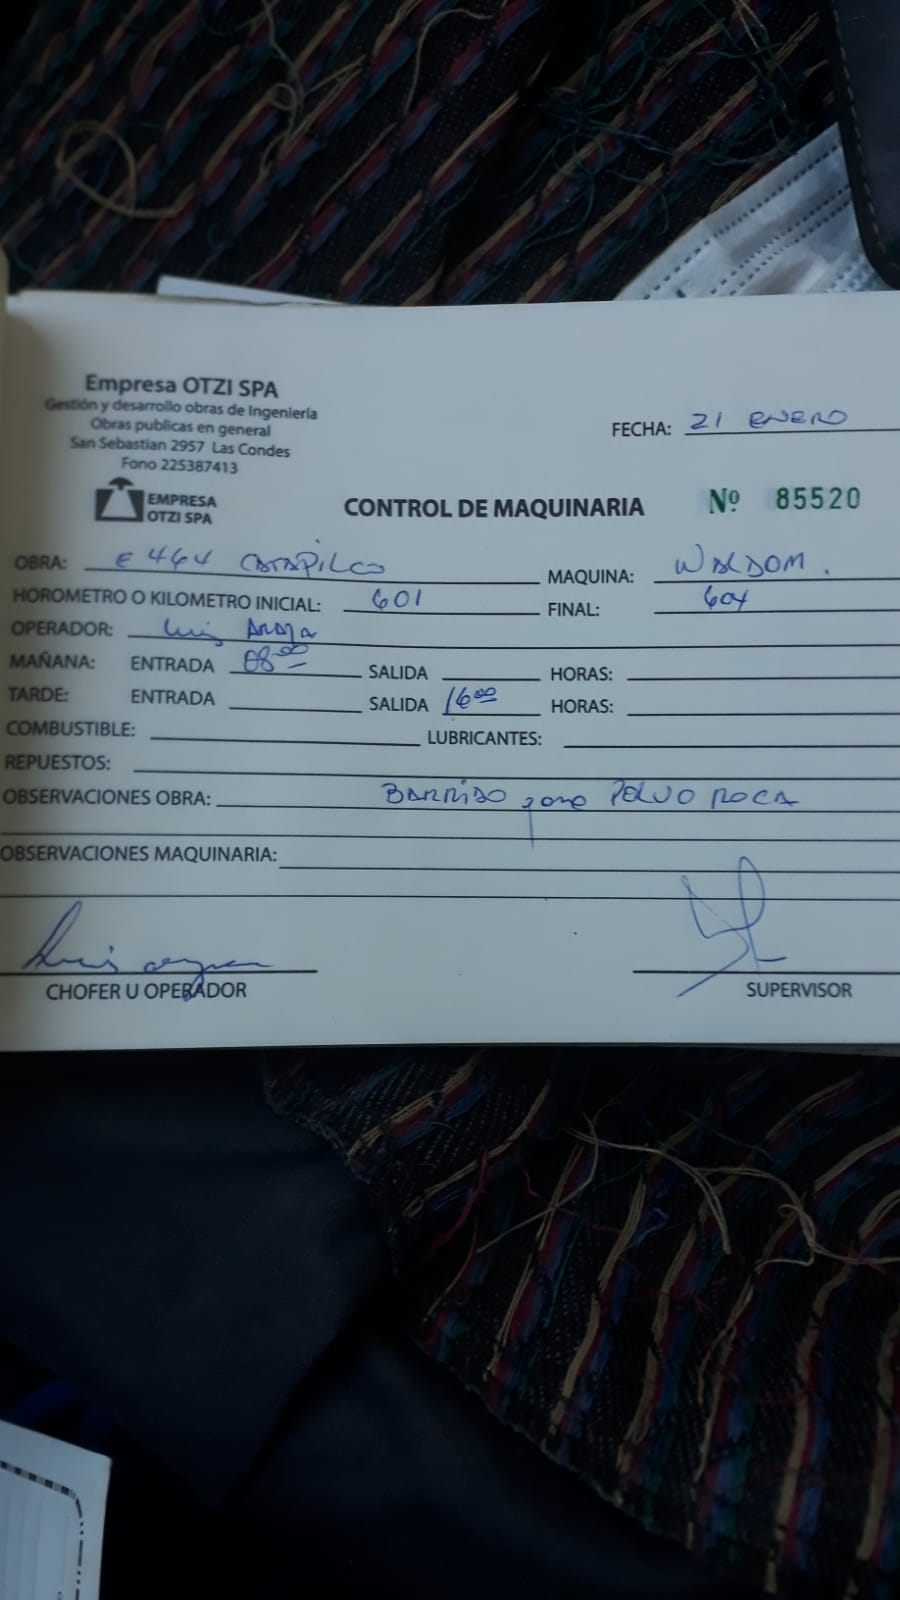 Empresa OTZI SPA
Gestión y desarrollo obras de Ingeniería
Obras publicas en general
San Sebastian 2957 Las Condes
Fono 225387413
FECHA: 21 ENERO
EMPRESA
OTZI SPA
CONTROL DE MAQUINARIA
Nº 85520
OBRA: E 464 CATAPILCO
MAQUINA: WALDOM.
HOROMETRO O KILOMETRO INICIAL: 601 FINAL: 604
OPERADOR: Luis
MAÑANA: ENTRADA 08 00 SALIDA HORAS:
TARDE: ENTRADA SALIDA 16 00 HORAS:
COMBUSTIBLE: LUBRICANTES:
REPUESTOS:
OBSERVACIONES OBRA: BARRIDO para POLVO ROCA
OBSERVACIONES MAQUINARIA:
Luis
CHOFER U OPERADOR
SUPERVISOR